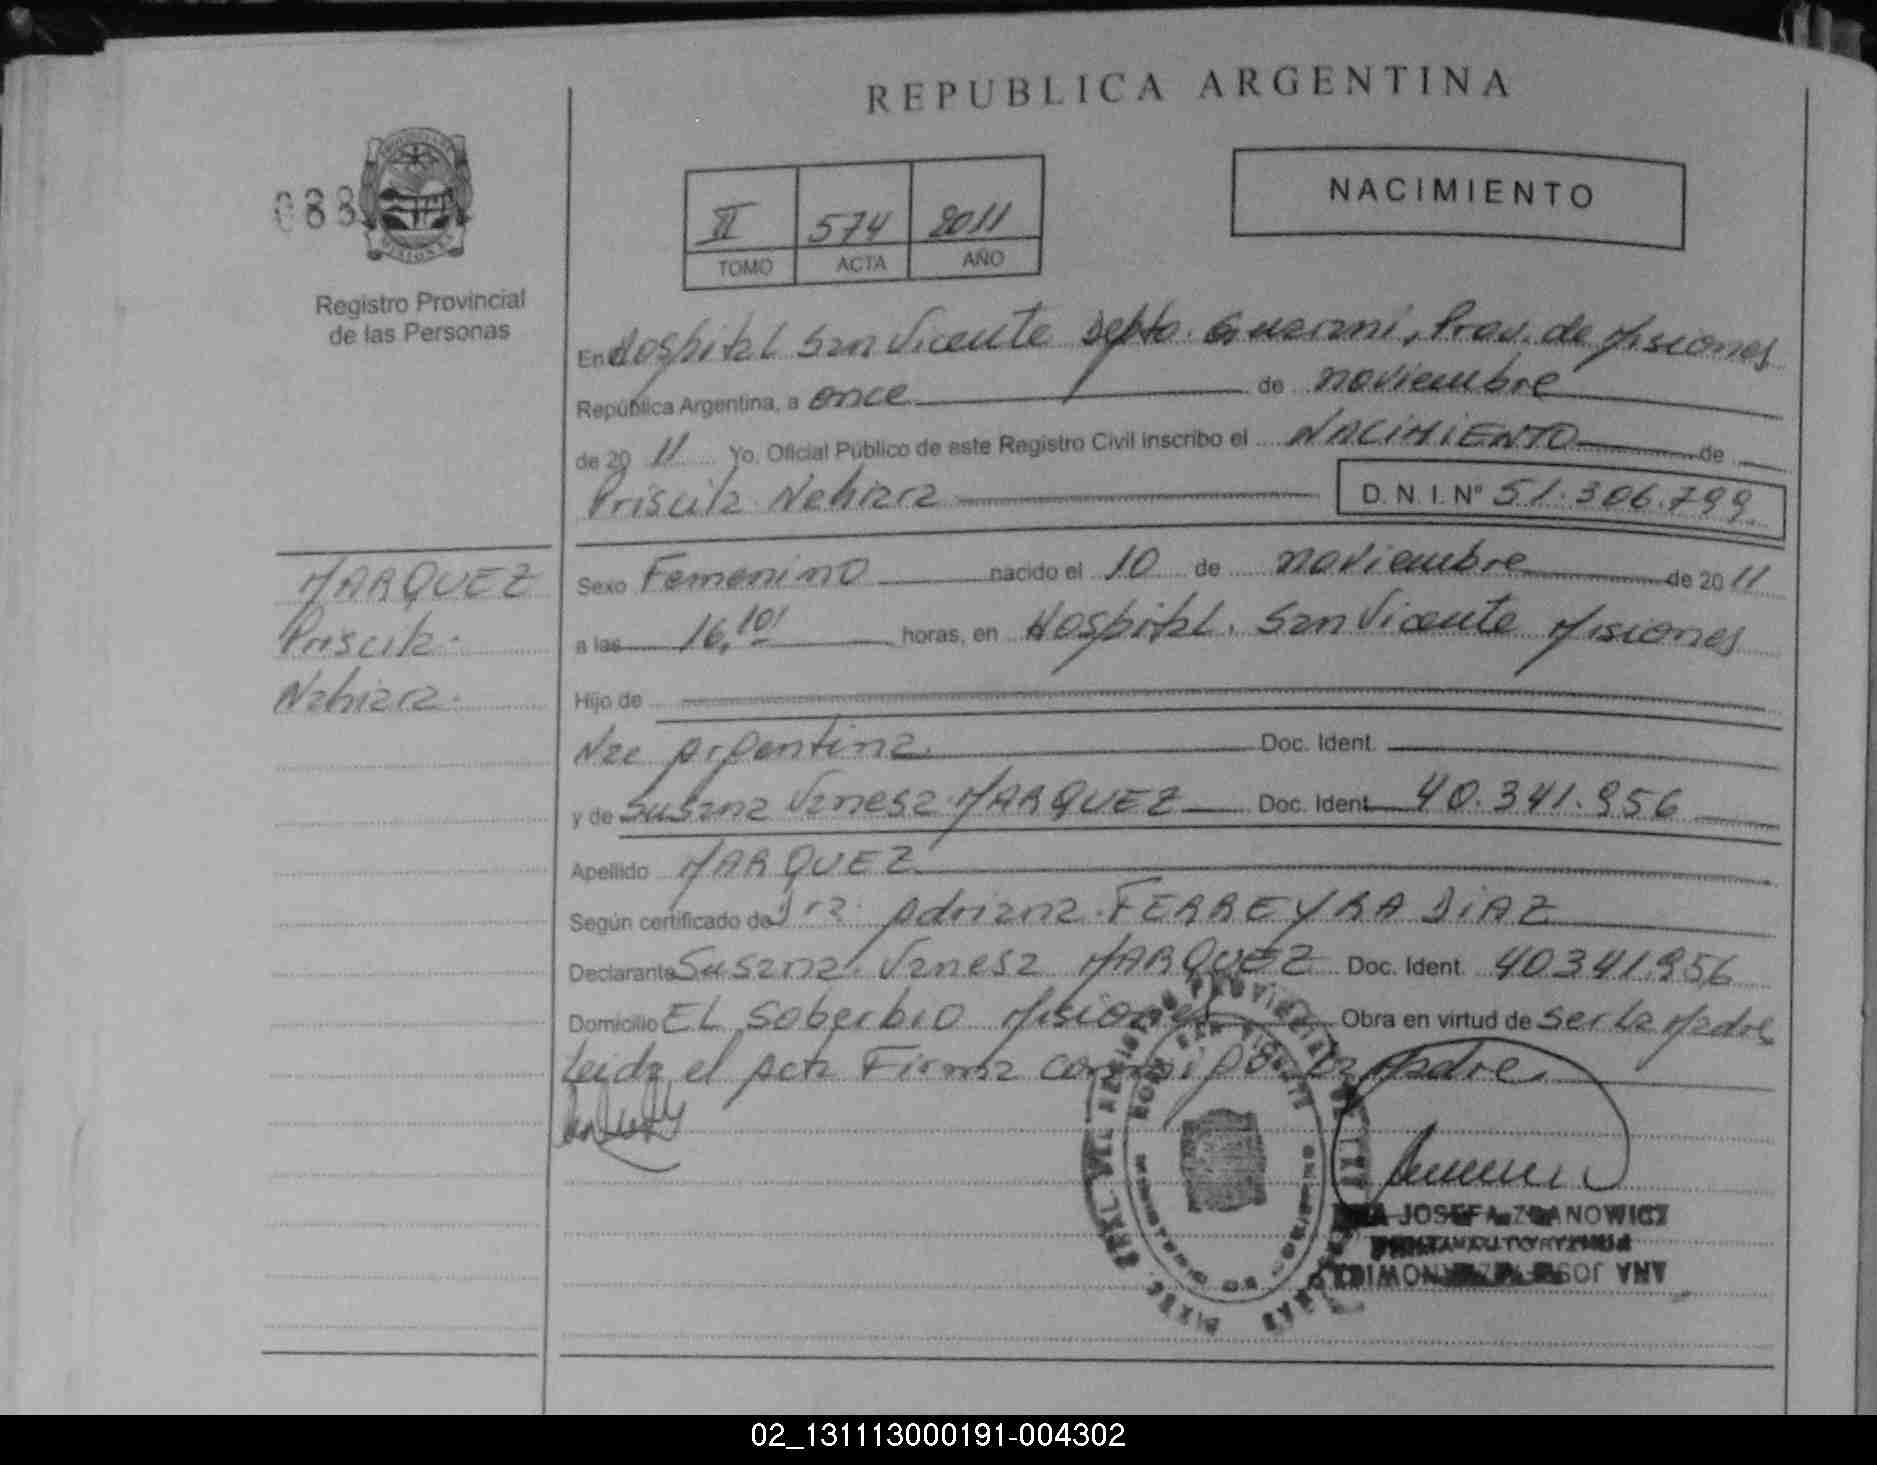 REPUBLICA ARGENTINA
NACIMIENTO
088
II 574 2011
TOMO ACTA AÑO
Registro Provincial
de las Personas
En Hospital San Vicente Depto. Guarani, Prov. de Misiones
República Argentina, a once de noviembre
de 2011 Yo. Oficial Público de este Registro Civil inscribo el NACIMIENTO de
Priscila Nahiara D. N. I. Nº 51.306.799
MARQUEZ
Priscila
Nahiara
Sexo Femenino nacido el 10 de noviembre de 2011
a las 16,10 horas, en Hospital. San Vicente Misiones
Hijo de
Nac Argentina Doc. Ident.
y de Susana Vanesa MARQUEZ Doc. Ident. 40.341.956
Apellido MARQUEZ
Según certificado de Dra. Adriana FERREYRA DIAZ
Declarante Susana Vanesa MARQUEZ Doc. Ident. 40341.956
Domicilio EL Soberbio Misiones Obra en virtud de ser la Madre
Leida el Acta Firma la Madre.
JOSEFA
ANA
02_131113000191-004302